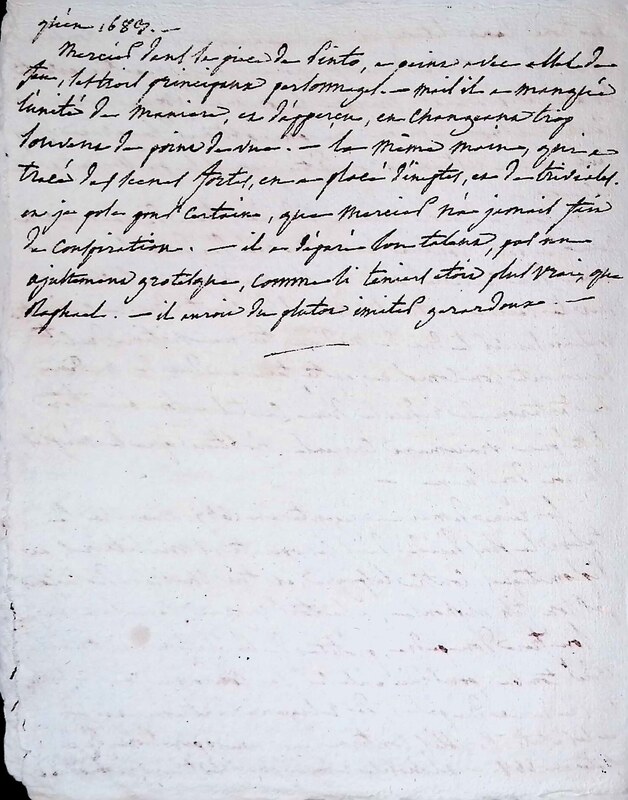 qu'en 1683. —
Mercier dans sa piece de Pinto, a peint avec assez de
feu, les trois principaux personnages. — mais il a manqué
l'unité de maniere, et d'apperçu, en changeant trop
souvent de point de vue. — la même main, qui a
tracé des scenes fortes, en a placé d'ineptes, et de triviales.
et je pose pour certain, que Mercier n'a jamais fait
de conspiration. — il a déparé son talent, par un
ajustement grotesque, comme si teniers etoit plus vrai, que
Raphael. — il auroit du plutot imiter gerardoux. —